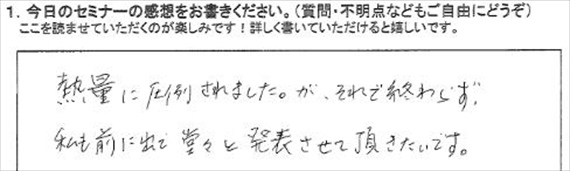 1. 今日のセミナーの感想をお書きください。(質問・不明点などもご自由にどうぞ)
ここを読ませていただくのが楽しみです!詳しく書いていただけると嬉しいです。
熱量に圧倒されました。が、それで終わらず、
私も前に出て堂々と発表させて頂きたいです。